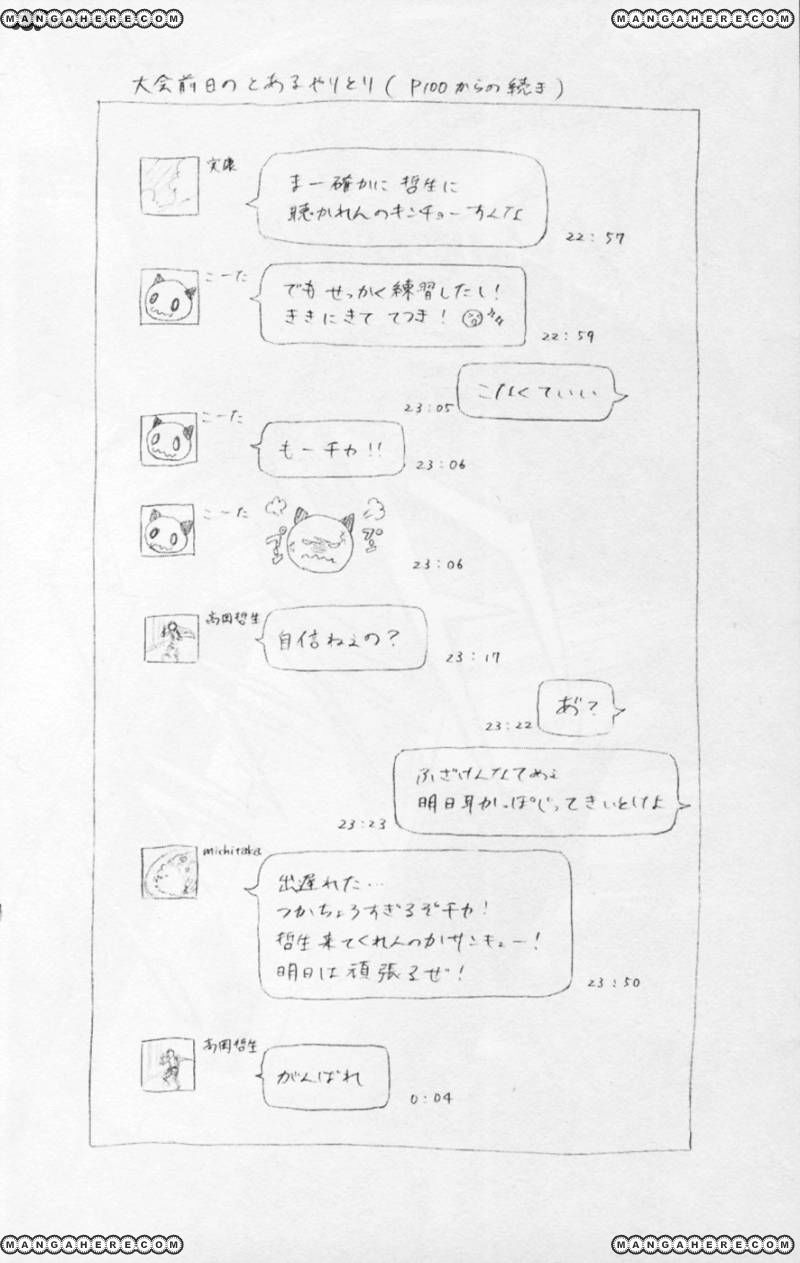 MANGAHERE.COM
MANGAHERE.COM
大会前日のとあるやりとり( P100からの続き)
実康
まー確かに 哲生に
聴かれんのキンチョーすんな
22:57
こーた
でも せっかく練習したし!
ききにきて てつき!
22:59
こなくていい
23:05
こーた
もーチカ!!
23:06
こーた
プン
プン
23:06
高岡哲生
自信ねぇの?
23:17
あ゛?
23:22
ふざけんなてめぇ
明日耳かっぽじってきいとけよ
23:23
michitaka
出遅れた…
つかちょろすぎるぞチカ!
哲生来てくれんのかサンキュー!
明日は頑張るぜ!
23:50
高岡哲生
がんばれ
0:04
MANGAHERE.COM
MANGAHERE.COM